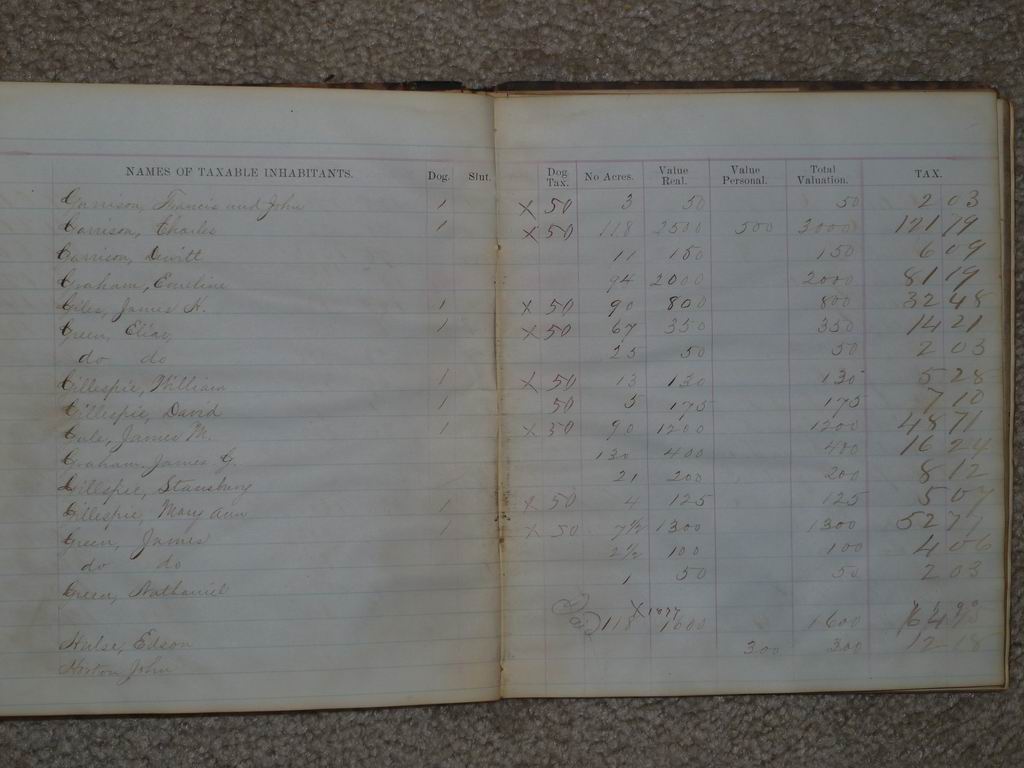 NAMES OF TAXABLE INHABITANTS. Dog. Slut. Dog Tax. No Acres. Value Real. Value Personal. Total Valuation. TAX.
Garrison, Francis and John 1 X 50 3 50 50 2 03
Garrison, Charles 1 X 50 118 2500 500 3000 121 79
Garrison, Dewitt 11 150 150 6 09
Graham, Emeline 94 2000 2000 81 19
Giles, James H. 1 X 50 90 800 800 32 48
Green, Elias 1 X 50 67 350 350 14 21
do do 25 50 50 2 03
Gillespie, William 1 X 50 13 130 130 5 28
Gillespie, David 1 50 5 175 175 7 10
James M. 1 X 50 90 1200 1200 48 71
Graham, James G. 130 400 400 16 24
Gillespie, Stansbury 21 200 200 8 12
Gillespie, Mary Ann 1 X 50 4 125 125 5 07
Green, James 1 X 50 7½ 1300 1300 52 77
do do 2½ 100 100 4 06
Green, Nathaniel 1 50 50 2 03
Hulse, Edson 118 1600 1600
Horton John 300 300 12 18